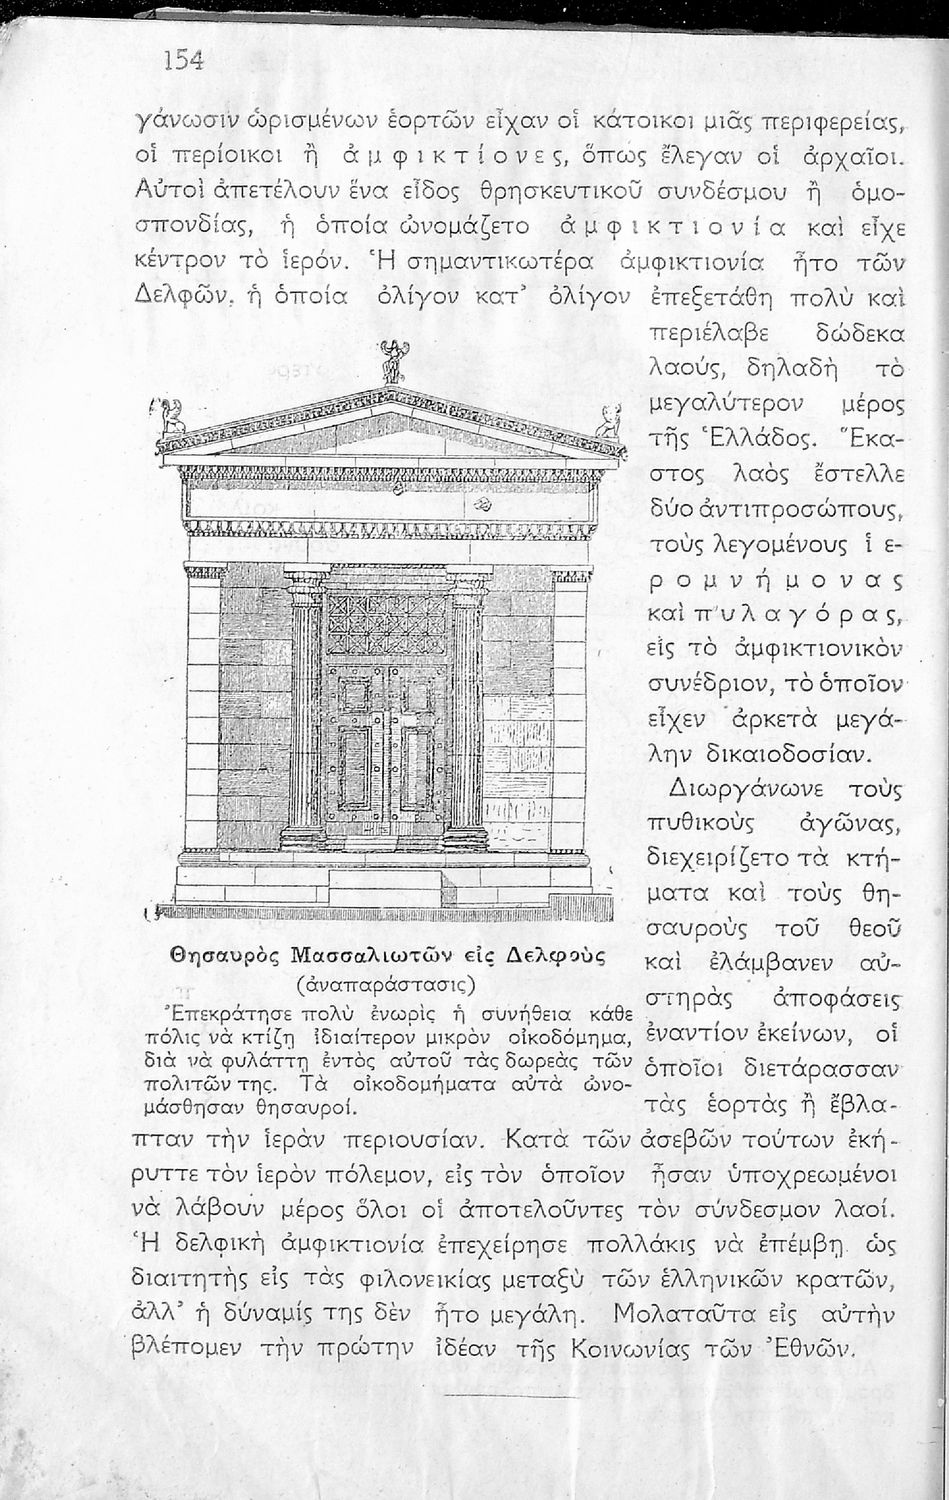 154
γάνωσιν ὡρισμένων ἑορτῶν εἶχαν οἱ κάτοικοι μιᾶς περιφερείας,
οἱ περίοικοι ἢ ἀμφικτίονες, ὅπως ἔλεγαν οἱ ἀρχαῖοι.
Αὐτοὶ ἀπετέλουν ἕνα εἶδος θρησκευτικοῦ συνδέσμου ἢ ὁμο-
σπονδίας, ἡ ὁποία ὠνομάζετο ἀμφικτιονία καὶ εἶχε
κέντρον τὸ ἱερόν. Ἡ σημαντικωτέρα ἀμφικτιονία ἦτο τῶν
Δελφῶν, ἡ ὁποία ὀλίγον κατ’ ὀλίγον ἐπεξετάθη πολὺ καὶ
περιέλαβε δώδεκα
λαούς, δηλαδὴ τὸ
μεγαλύτερον μέρος
τῆς Ἑλλάδος. Ἕκα-
στος λαὸς ἔστελλε
δύο ἀντιπροσώπους,
τοὺς λεγομένους ἱε-
ρομνήμονας
καὶ πυλαγόρας,
εἰς τὸ ἀμφικτιονικὸν
συνέδριον, τὸ ὁποῖον
εἶχεν ἀρκετὰ μεγά-
λην δικαιοδοσίαν.
Διωργάνωνε τοὺς
πυθικοὺς ἀγῶνας,
διεχειρίζετο τὰ κτή-
ματα καὶ τοὺς θη-
σαυροὺς τοῦ θεοῦ
καὶ ἐλάμβανεν αὐ-
στηρὰς ἀποφάσεις
ἐναντίον ἐκείνων, οἱ
ὁποῖοι διετάρασσαν
τὰς ἑορτὰς ἢ ἔβλα-
Θησαυρὸς Μασσαλιωτῶν εἰς Δελφοὺς
(ἀναπαράστασις)
Ἐπεκράτησε πολὺ ἐνωρὶς ἡ συνήθεια κάθε
πόλις νὰ κτίζῃ ἰδιαίτερον μικρὸν οἰκοδόμημα,
διὰ νὰ φυλάττῃ ἐντὸς αὐτοῦ τὰς δωρεὰς τῶν
πολιτῶν της. Τὰ οἰκοδομήματα αὐτὰ ὠνο-
μάσθησαν θησαυροί.
πταν τὴν ἱερὰν περιουσίαν. Κατὰ τῶν ἀσεβῶν τούτων ἐκή-
ρυττε τὸν ἱερὸν πόλεμον, εἰς τὸν ὁποῖον ἦσαν ὑποχρεωμένοι
νὰ λάβουν μέρος ὅλοι οἱ ἀποτελοῦντες τὸν σύνδεσμον λαοί.
Ἡ δελφικὴ ἀμφικτιονία ἐπεχείρησε πολλάκις νὰ ἐπέμβῃ ὡς
διαιτητὴς εἰς τὰς φιλονεικίας μεταξὺ τῶν ἑλληνικῶν κρατῶν,
ἀλλ’ ἡ δύναμίς της δὲν ἦτο μεγάλη. Μολαταῦτα εἰς αὐτὴν
βλέπομεν τὴν πρώτην ἰδέαν τῆς Κοινωνίας τῶν Ἐθνῶν.